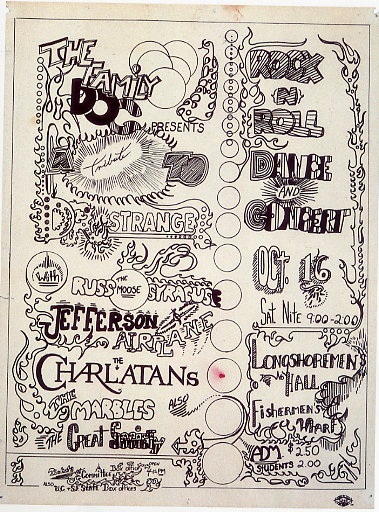 THE
FAMILY
DOG
PRESENTS
A tribute TO
DR. STRANGE
With
RUSS THE MOOSE SYRACUSE
JEFFERSON
AIRPLANE
THE
CHARLATANS
THE MARBLES
ALSO
THE Great Society
ALSO U.C. + S.F. STATE Box offices
ROCK
N
ROLL
DANCE
AND
CONCERT
Oct. 16
Sat Nite 9:00-2:00
LONGSHOREMENS
HALL
Fishermens
Wharf
ADM $2.50
STUDENTS 2.00